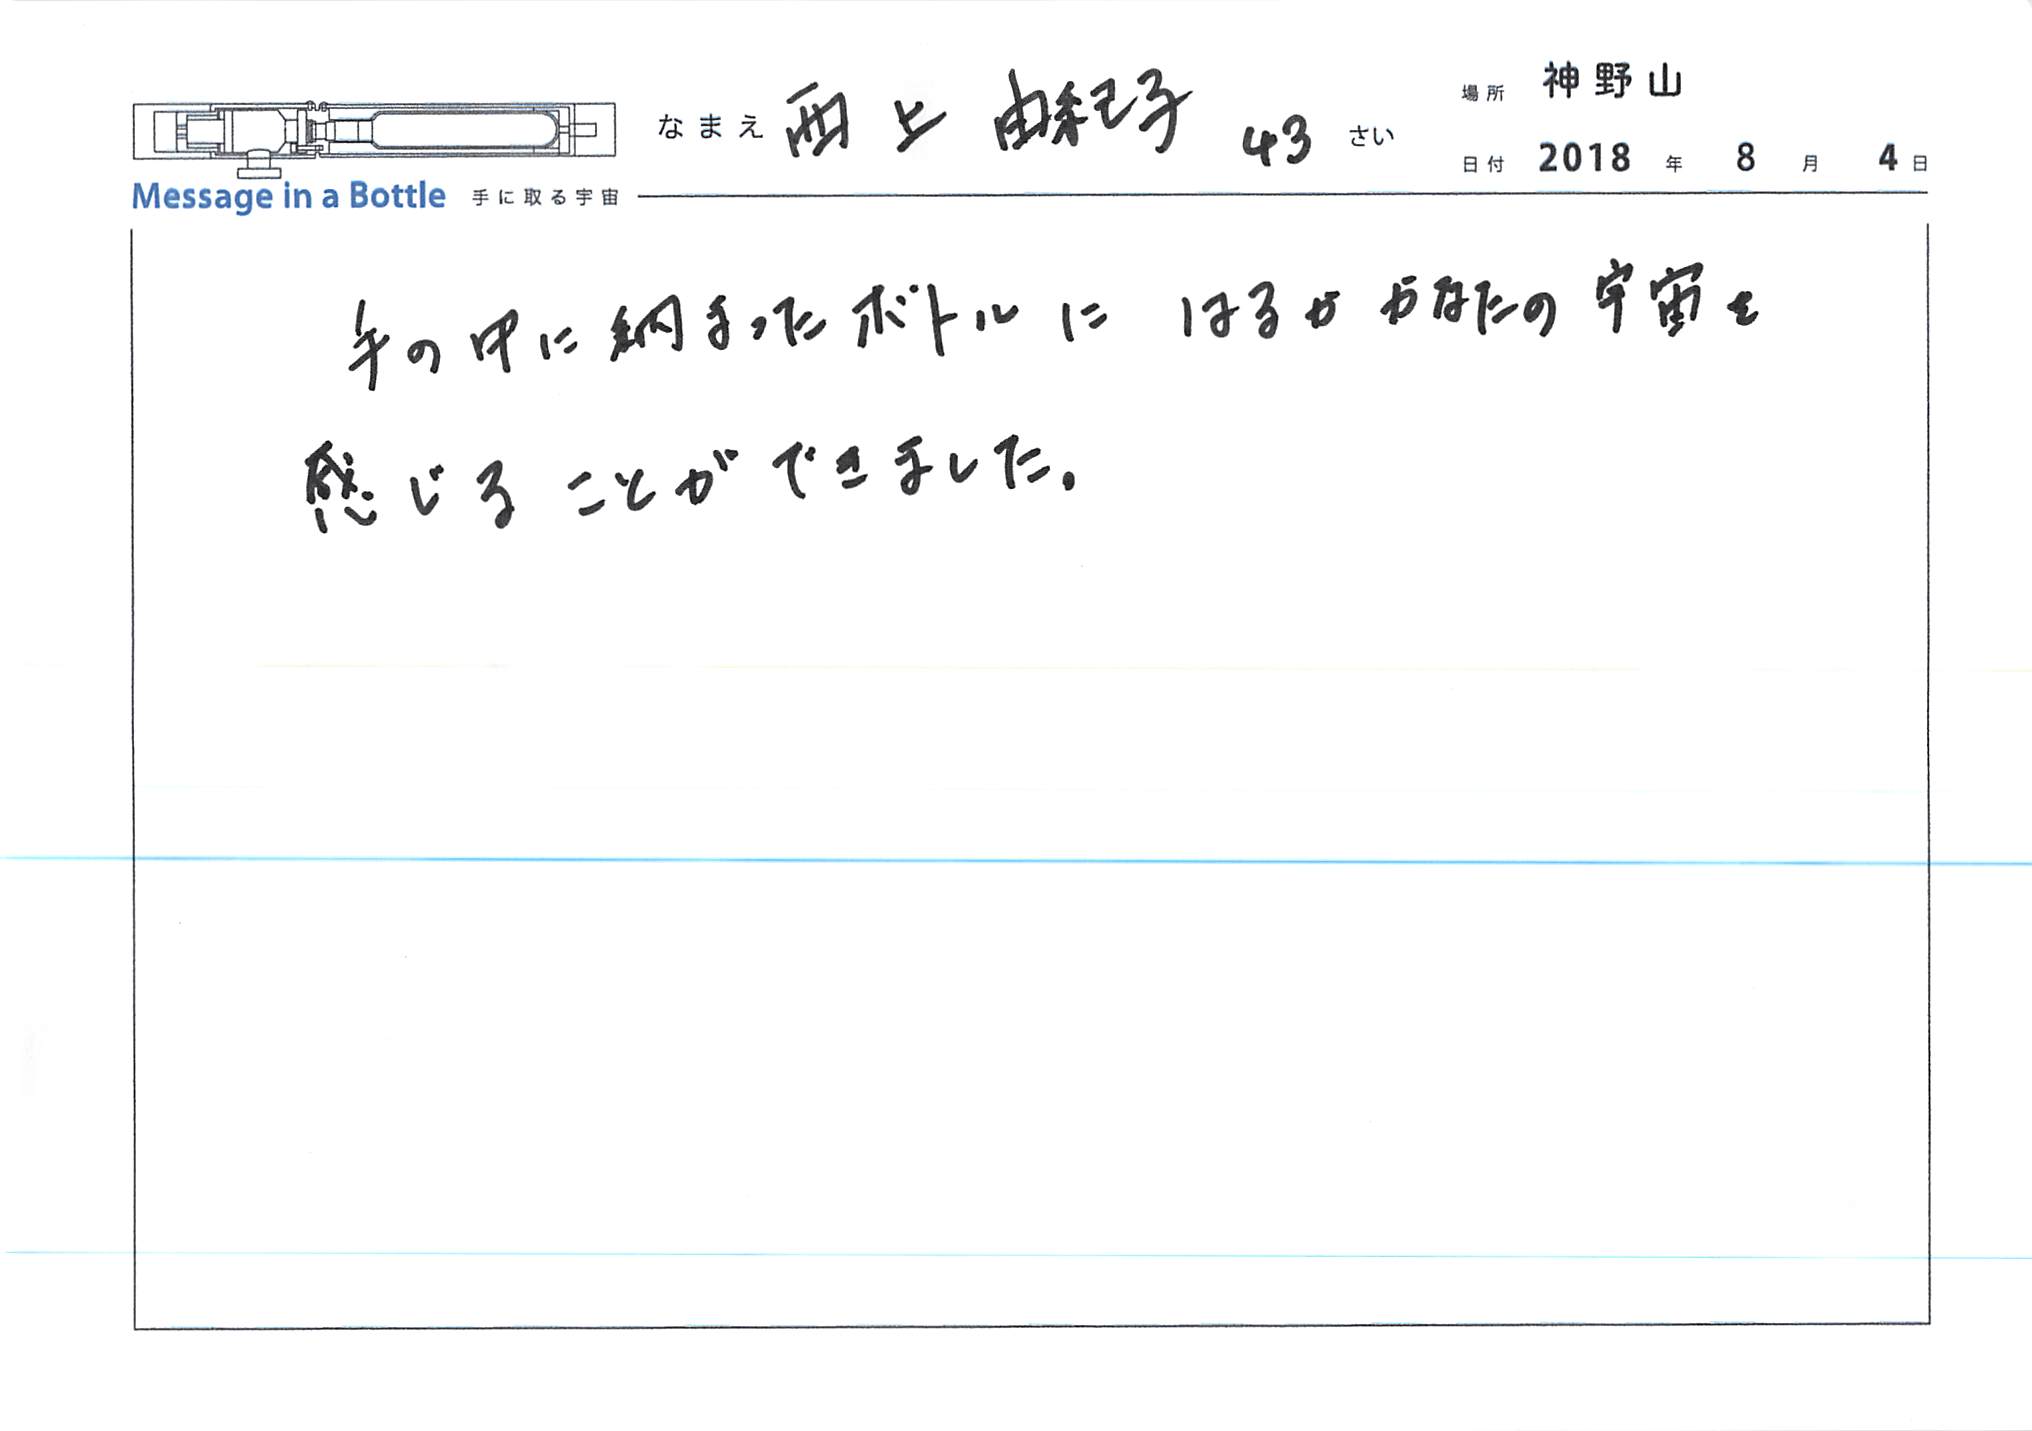 なまえ 西上 由紀子 43 さい
場所 神野山
日付 2018 年 8 月 4 日
Message in a Bottle 手に取る宇宙
手の中に納まったボトルに はるか かなたの宇宙を
感じることができました。